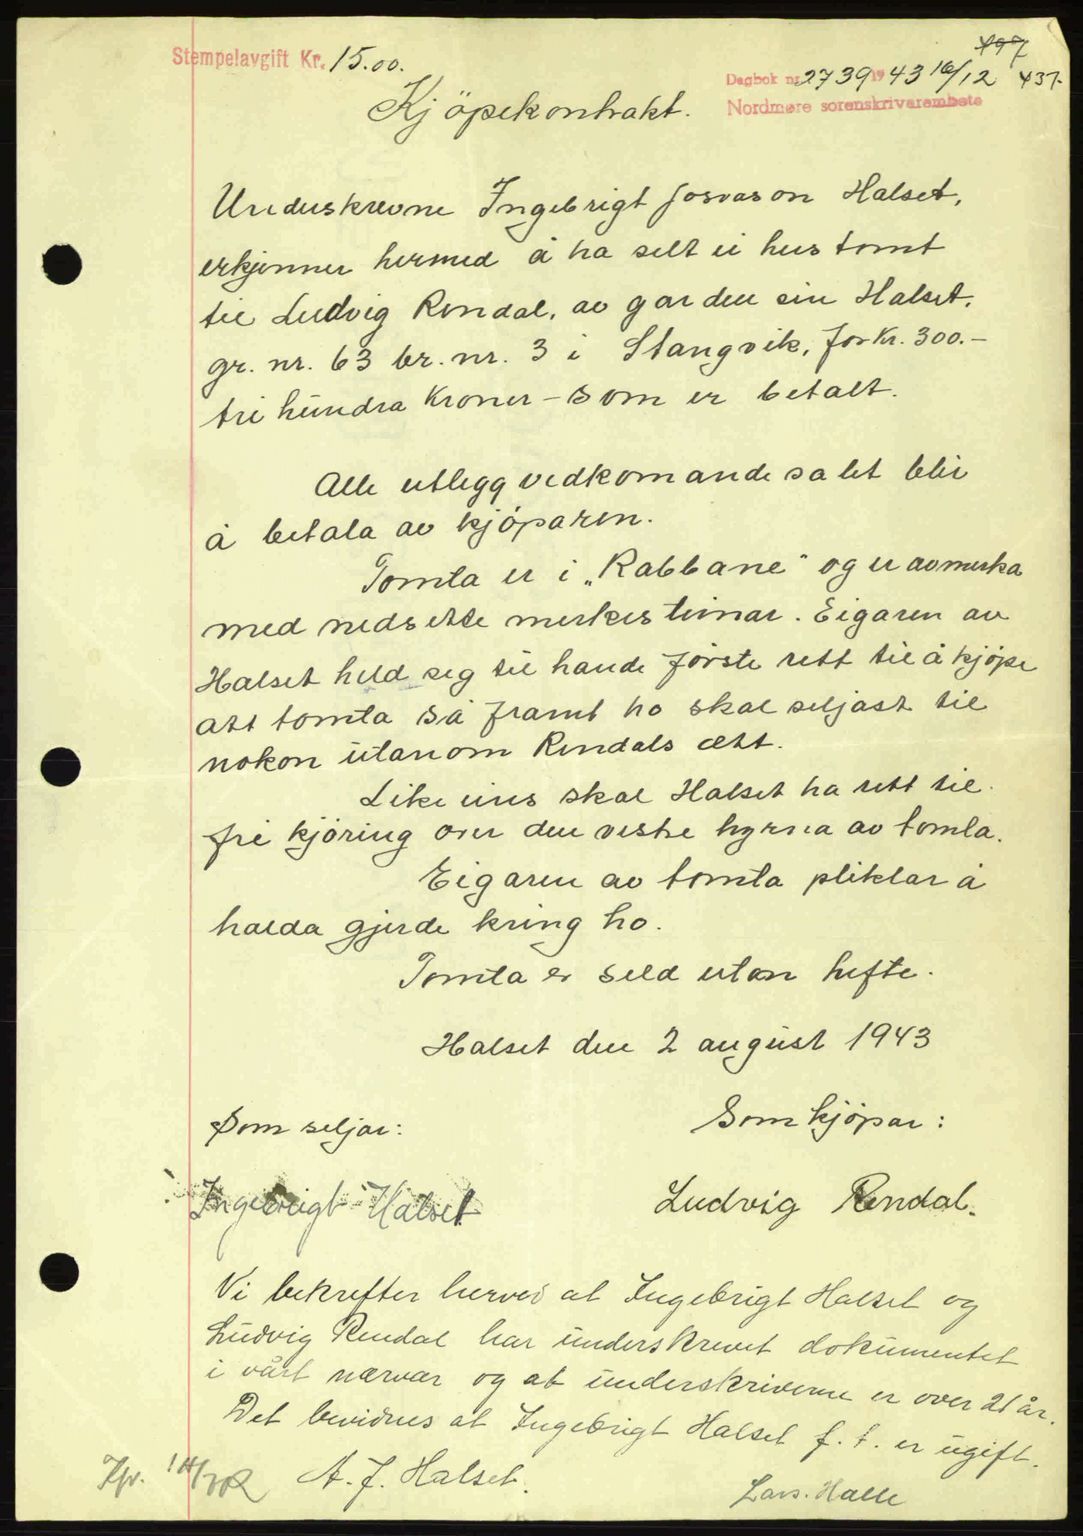 Stempelavgift Kr. 15.00.
497
Dagbok nr. 2739 1943 16/12 437.
Nordmøre sorenskriverembete
Kjöpekontrakt.
Underskrevne Ingebrigt Josvason Halset,
erkjenner hermed å ha selt ei hustomt
til Ludvig Rendal, av garden sin Halset,
gr. nr. 63 br. nr. 3 i Stangvik, for Kr. 300.–
tri hundra Kroner – som er betalt.
Alle utlegg vedkomande salet blir
å betala av kjöparen.
Tomta er i „Rabbane" og er avmerka
med nedsette merkesteinar. Eigaren av
Halset held seg til hande förste rett til å kjöpe
att tomta så framt ho skal seljast til
nokon utanom Rendals ætt.
Like eins skal Halset ha rett til
fri kjöring over den vestre hyrna av tomta.
Eigaren av tomta pliktar å
halda gjerde kring ho.
Tomta er seld utan hefte.
Halset den 2 august 1943
Som seljar:
Som kjöpar:
Ingebrigt Halset
Ludvig Rendal.
Vi bekrefter herved at Ingebrigt Halset og
Ludvig Rendal har underskrevet dokumentet
i vårt nærvær og at underskriverne er over 21 år.
Det bevidnes at Ingebrigt Halset f. t. er ugift.
A. J. Halset.
Lars Halle